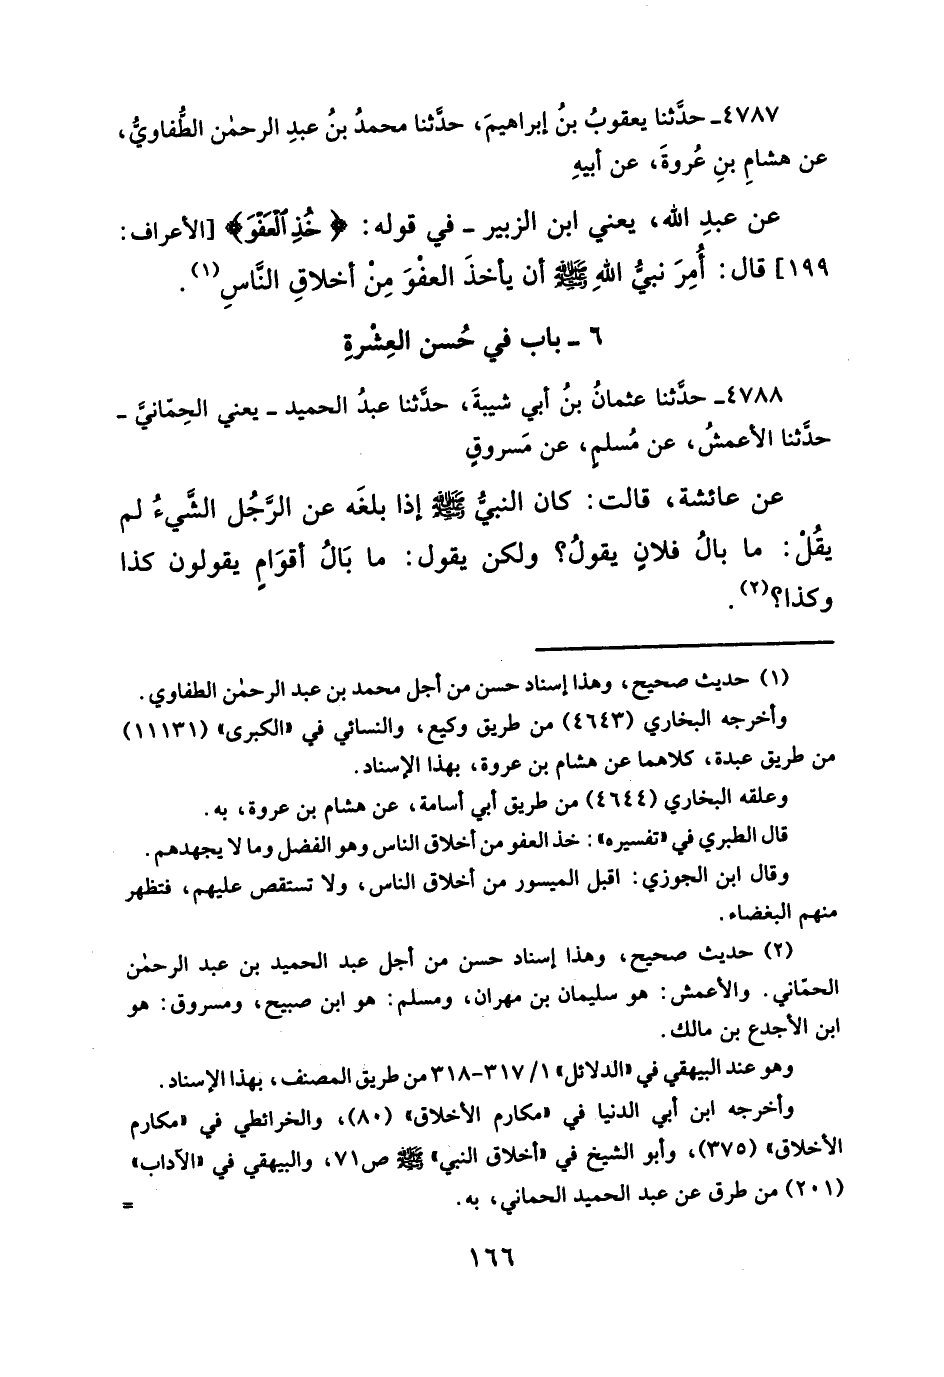 ٤٧٨٧ـ حدَّثنا يعقوبُ بنُ إبراهيمَ، حدَّثنا محمدُ بنُ عبدِ الرحمٰن الطُّفاويُّ،
عن هشامِ بنِ عُروةَ، عن أبيهِ
عن عبدِ الله، يعني ابن الزبير ـ في قوله: ﴿خُذِ ٱلْعَفْوَ﴾ [الأعراف:
١٩٩] قال: أُمِرَ نبيُّ اللهِ ﷺ أن يأخذَ العفْوَ مِنْ أخلاقِ النَّاسِ(١).
٦ ـ باب في حُسن العِشْرةِ
٤٧٨٨ـ حدَّثنا عثمانُ بنُ أبي شيبةَ، حدَّثنا عبدُ الحميد ـ يعني الحِمّانيَّ ـ
حدَّثنا الأعمشُ، عن مُسلمٍ، عن مَسروقٍ
عن عائشة، قالت: كان النبيُّ ﷺ إذا بلغَه عن الرَّجُل الشَّيءُ لم
يقُلْ: ما بالُ فلانٍ يقولُ؟ ولكن يقول: ما بَالُ أقوَامٍ يقولون كذا
وكذا؟(٢).
(١) حديث صحيح، وهذا إسناد حسن من أجل محمد بن عبد الرحمٰن الطفاوي.
وأخرجه البخاري (٤٦٤٣) من طريق وكيع، والنسائي في «الكبرى» (١١١٣١)
من طريق عبدة، كلاهما عن هشام بن عروة، بهذا الإسناد.
وعلقه البخاري (٤٦٤٤) من طريق أبي أسامة، عن هشام بن عروة، به.
قال الطبري في «تفسيره»: خذ العفو من أخلاق الناس وهو الفضل وما لا يجهدهم.
وقال ابن الجوزي: اقبل الميسور من أخلاق الناس، ولا تستقص عليهم، فتظهر
منهم البغضاء.
(٢) حديث صحيح، وهذا إسناد حسن من أجل عبد الحميد بن عبد الرحمٰن
الحمّاني. والأعمش: هو سليمان بن مهران، ومسلم: هو ابن صبيح، ومسروق: هو
ابن الأجدع بن مالك.
وهو عند البيهقي في «الدلائل» ١/ ٣١٧-٣١٨ من طريق المصنف، بهذا الإسناد.
وأخرجه ابن أبي الدنيا في «مكارم الأخلاق» (٨٠)، والخرائطي في «مكارم
الأخلاق» (٣٧٥)، وأبو الشيخ في «أخلاق النبي» ﷺ ص٧١، والبيهقي في «الآداب»
(٢٠١) من طرق عن عبد الحميد الحماني، به. =
١٦٦